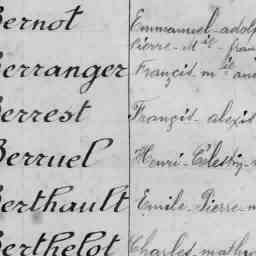 Bernot Emmanuel-adolp
Pierre-Mie-fran
Berranger François mie an
Berrest François-alexis
Berruel Henri-Célestin-
Berthault Emile-Pierre-m
Berthelot Charles mathu